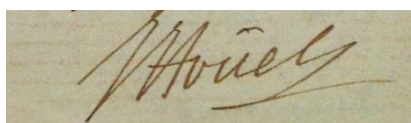 JHoüel